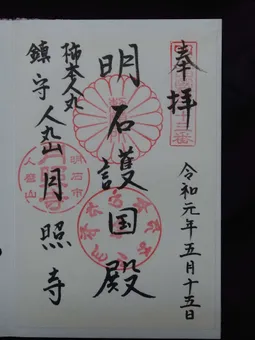 奉拝
令和元年五月十五日
明石護国殿
柿本人丸
鎮守人丸山月照寺
明石市
人丸山